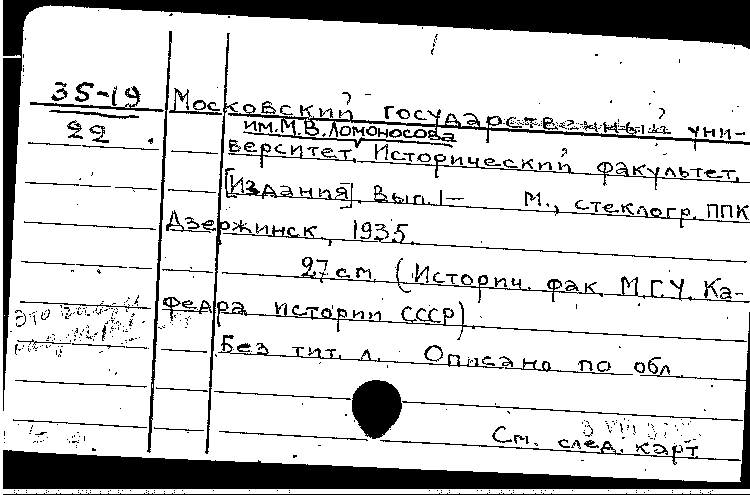 35-19
22
Московский государственный уни-
им. М.В. Ломоносова
верситет. Исторический факультет.
[Издания]. Вып. 1— М., стеклогр. ППК
Дзержинск, 1935.
27 см. (Историч. фак. М.Г.У. Ка-
федра истории СССР).
Без тит. л. Описано по обл.
См. след. карт